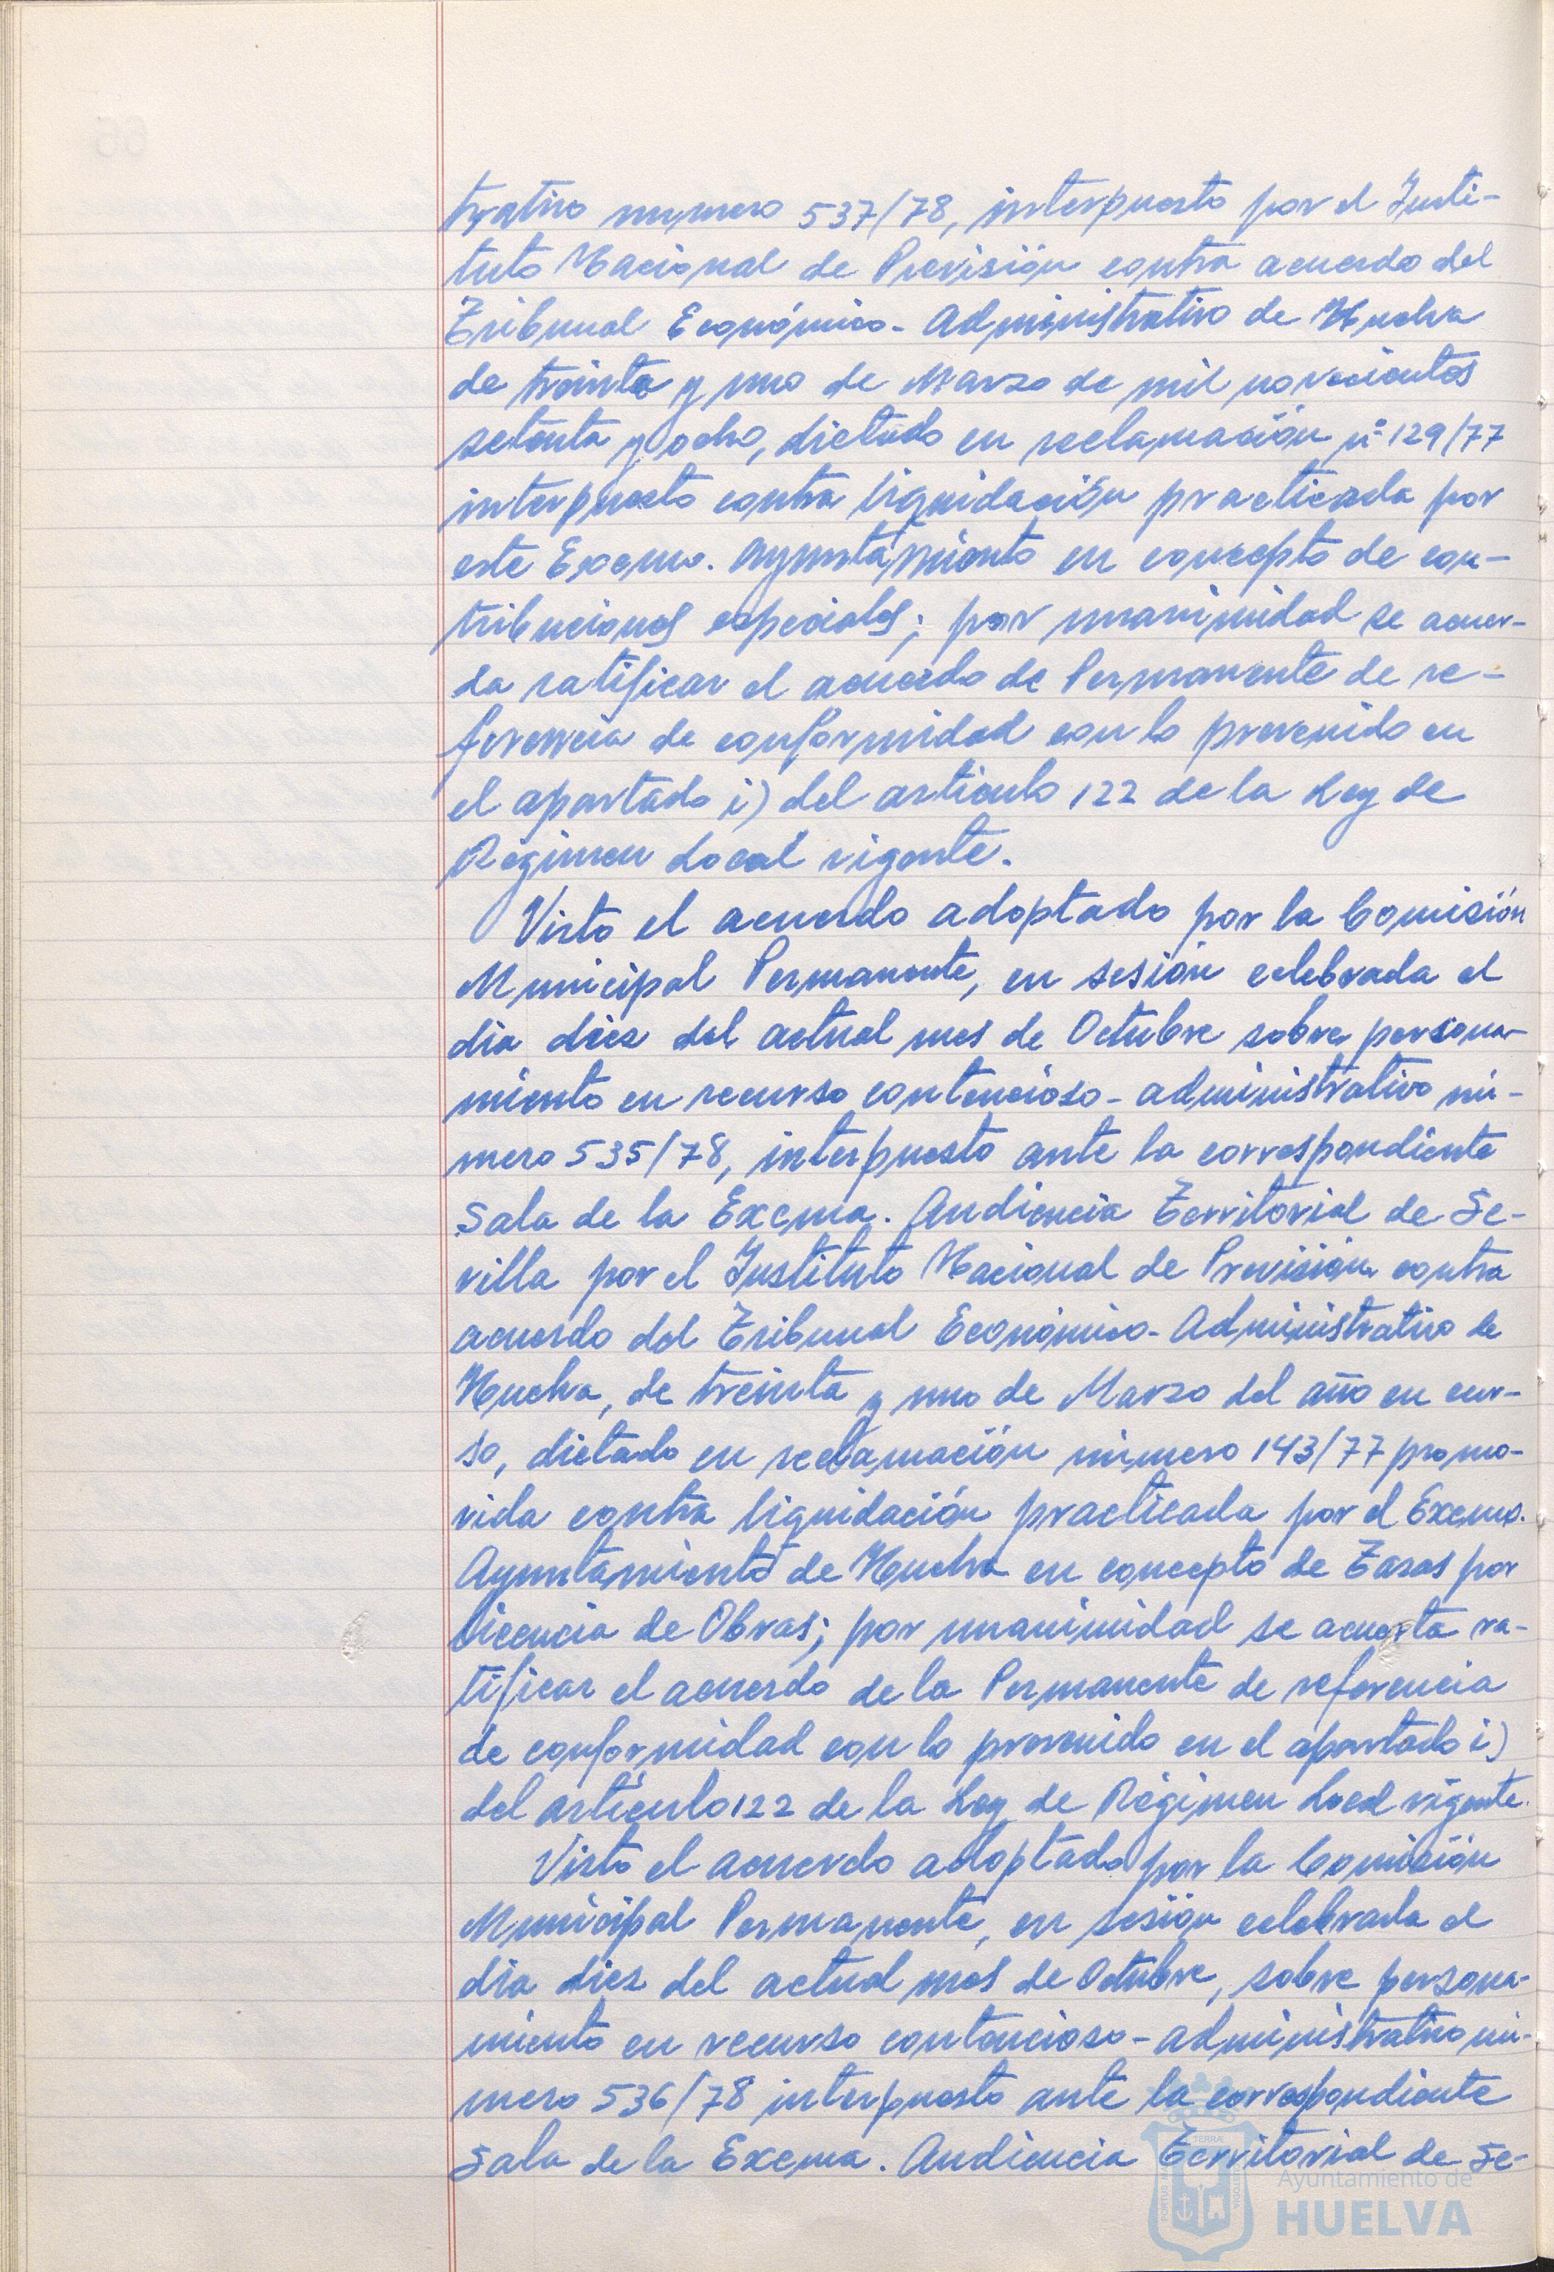 trativo numero 537/78, interpuesto por el Insti-
tuto Nacional de Previsión contra acuerdo del
Tribunal Económico-Administrativo de Huelva
de treinta y uno de Marzo de mil novecientos
setenta y ocho, dictado en reclamación nº 129/77
interpuesto contra liquidación practicada por
este Excmo. Ayuntamiento en concepto de con-
tribuciones especiales; por unanimidad se acuer-
da ratificar el acuerdo de Permanente de re-
ferencia de conformidad con lo prevenido en
el apartado i) del artículo 122 de la Ley de
Régimen Local vigente.
Visto el acuerdo adoptado por la Comisión
Municipal Permanente, en sesión celebrada el
dia diez del actual mes de Octubre sobre persona-
miento en recurso contencioso-administrativo nú-
mero 535/78, interpuesto ante la correspondiente
Sala de la Excma. Audiencia Territorial de Se-
villa por el Instituto Nacional de Previsión contra
acuerdo del Tribunal Económico-Administrativo de
Huelva, de treinta y uno de Marzo del año en cur-
so, dictado en reclamación número 143/77 promo-
vida contra liquidación practicada por el Excmo.
Ayuntamiento de Huelva en concepto de Tasas por
licencia de Obras; por unanimidad se acuerda ra-
tificar el acuerdo de la Permanente de referencia
de conformidad con lo prevenido en el apartado i)
del artículo 122 de la Ley de Régimen Local vigente.
Visto el acuerdo adoptado por la Comisión
Municipal Permanente, en sesión celebrada el
dia diez del actual mes de Octubre, sobre persona-
miento en recurso contencioso-administrativo nú-
mero 536/78 interpuesto ante la correspondiente
Sala de la Excma. Audiencia Territorial de Se-
Ayuntamiento de
HUELVA